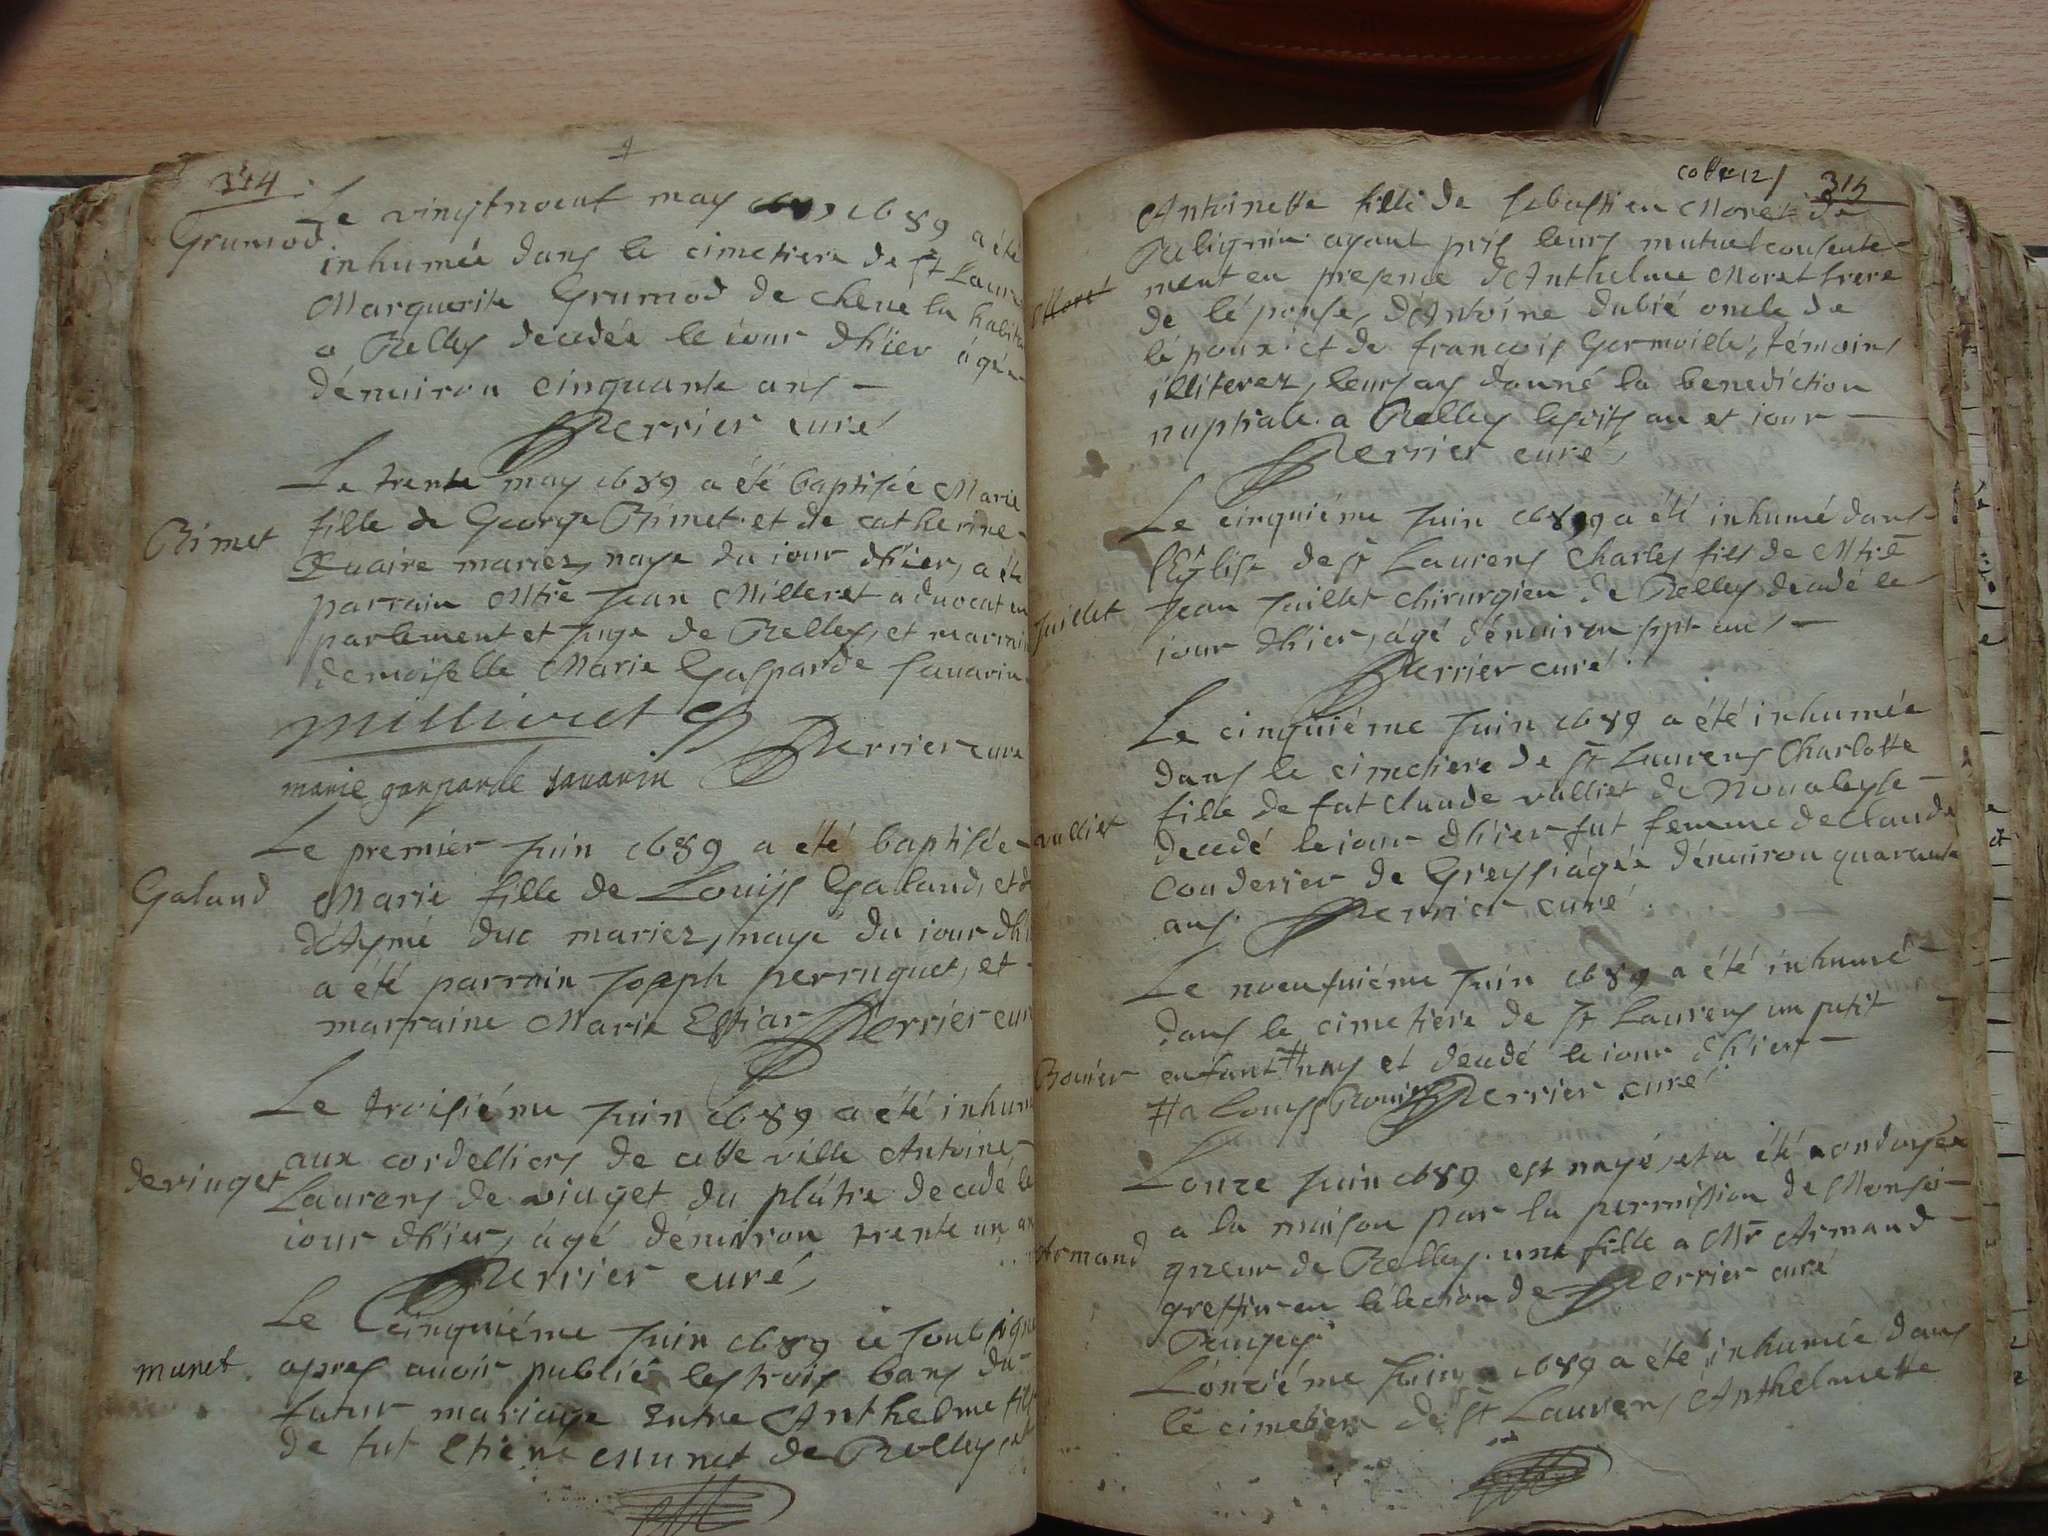 314
Grumod
Le vingtnoeuf may 1689 a été
inhumée dans le cimetiere de St Laurens
Marguerite Grumod de chene la
a Belley decedée le iour dhier ágée
dénuiron cinquante ans
Perrier curé
Bimet
Le trente may 1689 a été baptisée Marie
fille de George Bimet et de catherine
mariez, naye du iour dhier, a été
parrain Mtre Jean Milleret aduocat en
parlement et Juge de Belley, et marraine
demoiselle Marie Gasparde Sauarin
Millieret
Perrier curé
marie gasparde sauarin
Galand
Le premier Juin 1689 a été baptisée
Marie fille de Louijs Galand, et
d'Aymé duc mariez, naye du iour dhier
a été parrain Joseph perruquet, et
marraine Marie Perrier curé
devinget
Le troisiéme Juin 1689 a été inhumé
aux cordelliers de cette ville Antoine
Laurens de du plátre decedé le
iour dhier, ágé dénuiron trente un ans
Perrier curé
munet
Le Cinquiéme Juin 1689 ie soubsigné
apres auoir publié les trois bans du
futur mariage entre Anthelme fils
de fut Etiene Munet de Belley, et
cotte 12
315
Antoinette fille de Sebastien Moret de
ayant pris leurs mutuel consente-
Moret
ment en presence d'Anthelme Moret frere
de lépouse, d'Antoine dubié oncle de
lépoux et de francois Gormoille, témoins
illiterez, leurs ay donné la benediction
nuptiale a Belley lesdits an et iour
Perrier curé
Le cinquiéme Juin 1689 a été inhumé dans
l'Eglise de St Laurens Charles fils de Mtre
Juillet
Jean Juillet chirurgien de Belley decedé le
iour dhier, ágé dénuiron sept ans
Perrier curé
Le cinquiéme Juin 1689 a été inhumée
dans le cimetiere de St Laurens Charlotte
fille de fut claude vulliet de Noualeyse
vulliet
decedé le iour dhier fut femme de Claude
Couderier de ágée dénuiron quarante
ans. Perrier curé
Le noeufuiéme Juin 1689 a été inhumé
dans le cimetiere de St Laurens un petit
Bouier
enfant # nay et decedé le iour dhier
# a Louijs Bouier Perrier curé
L'onze Juin 1689 est naye, et a été ondoyée
a la maison par la permission de Monsei-
Armand
gneur de Belley une fille a Mr Armand
greffier en l'élection de Perrier curé
L'onziéme Juin 1689 a été inhumée dans
le cimetiere de St Laurens Anthelmette